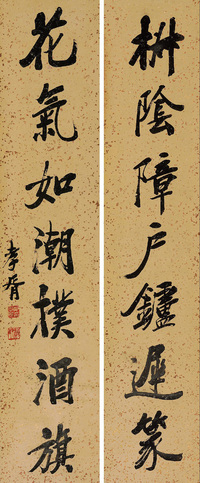 枏陰障戶鑪遲篆
花氣如潮撲酒旗
孝胥